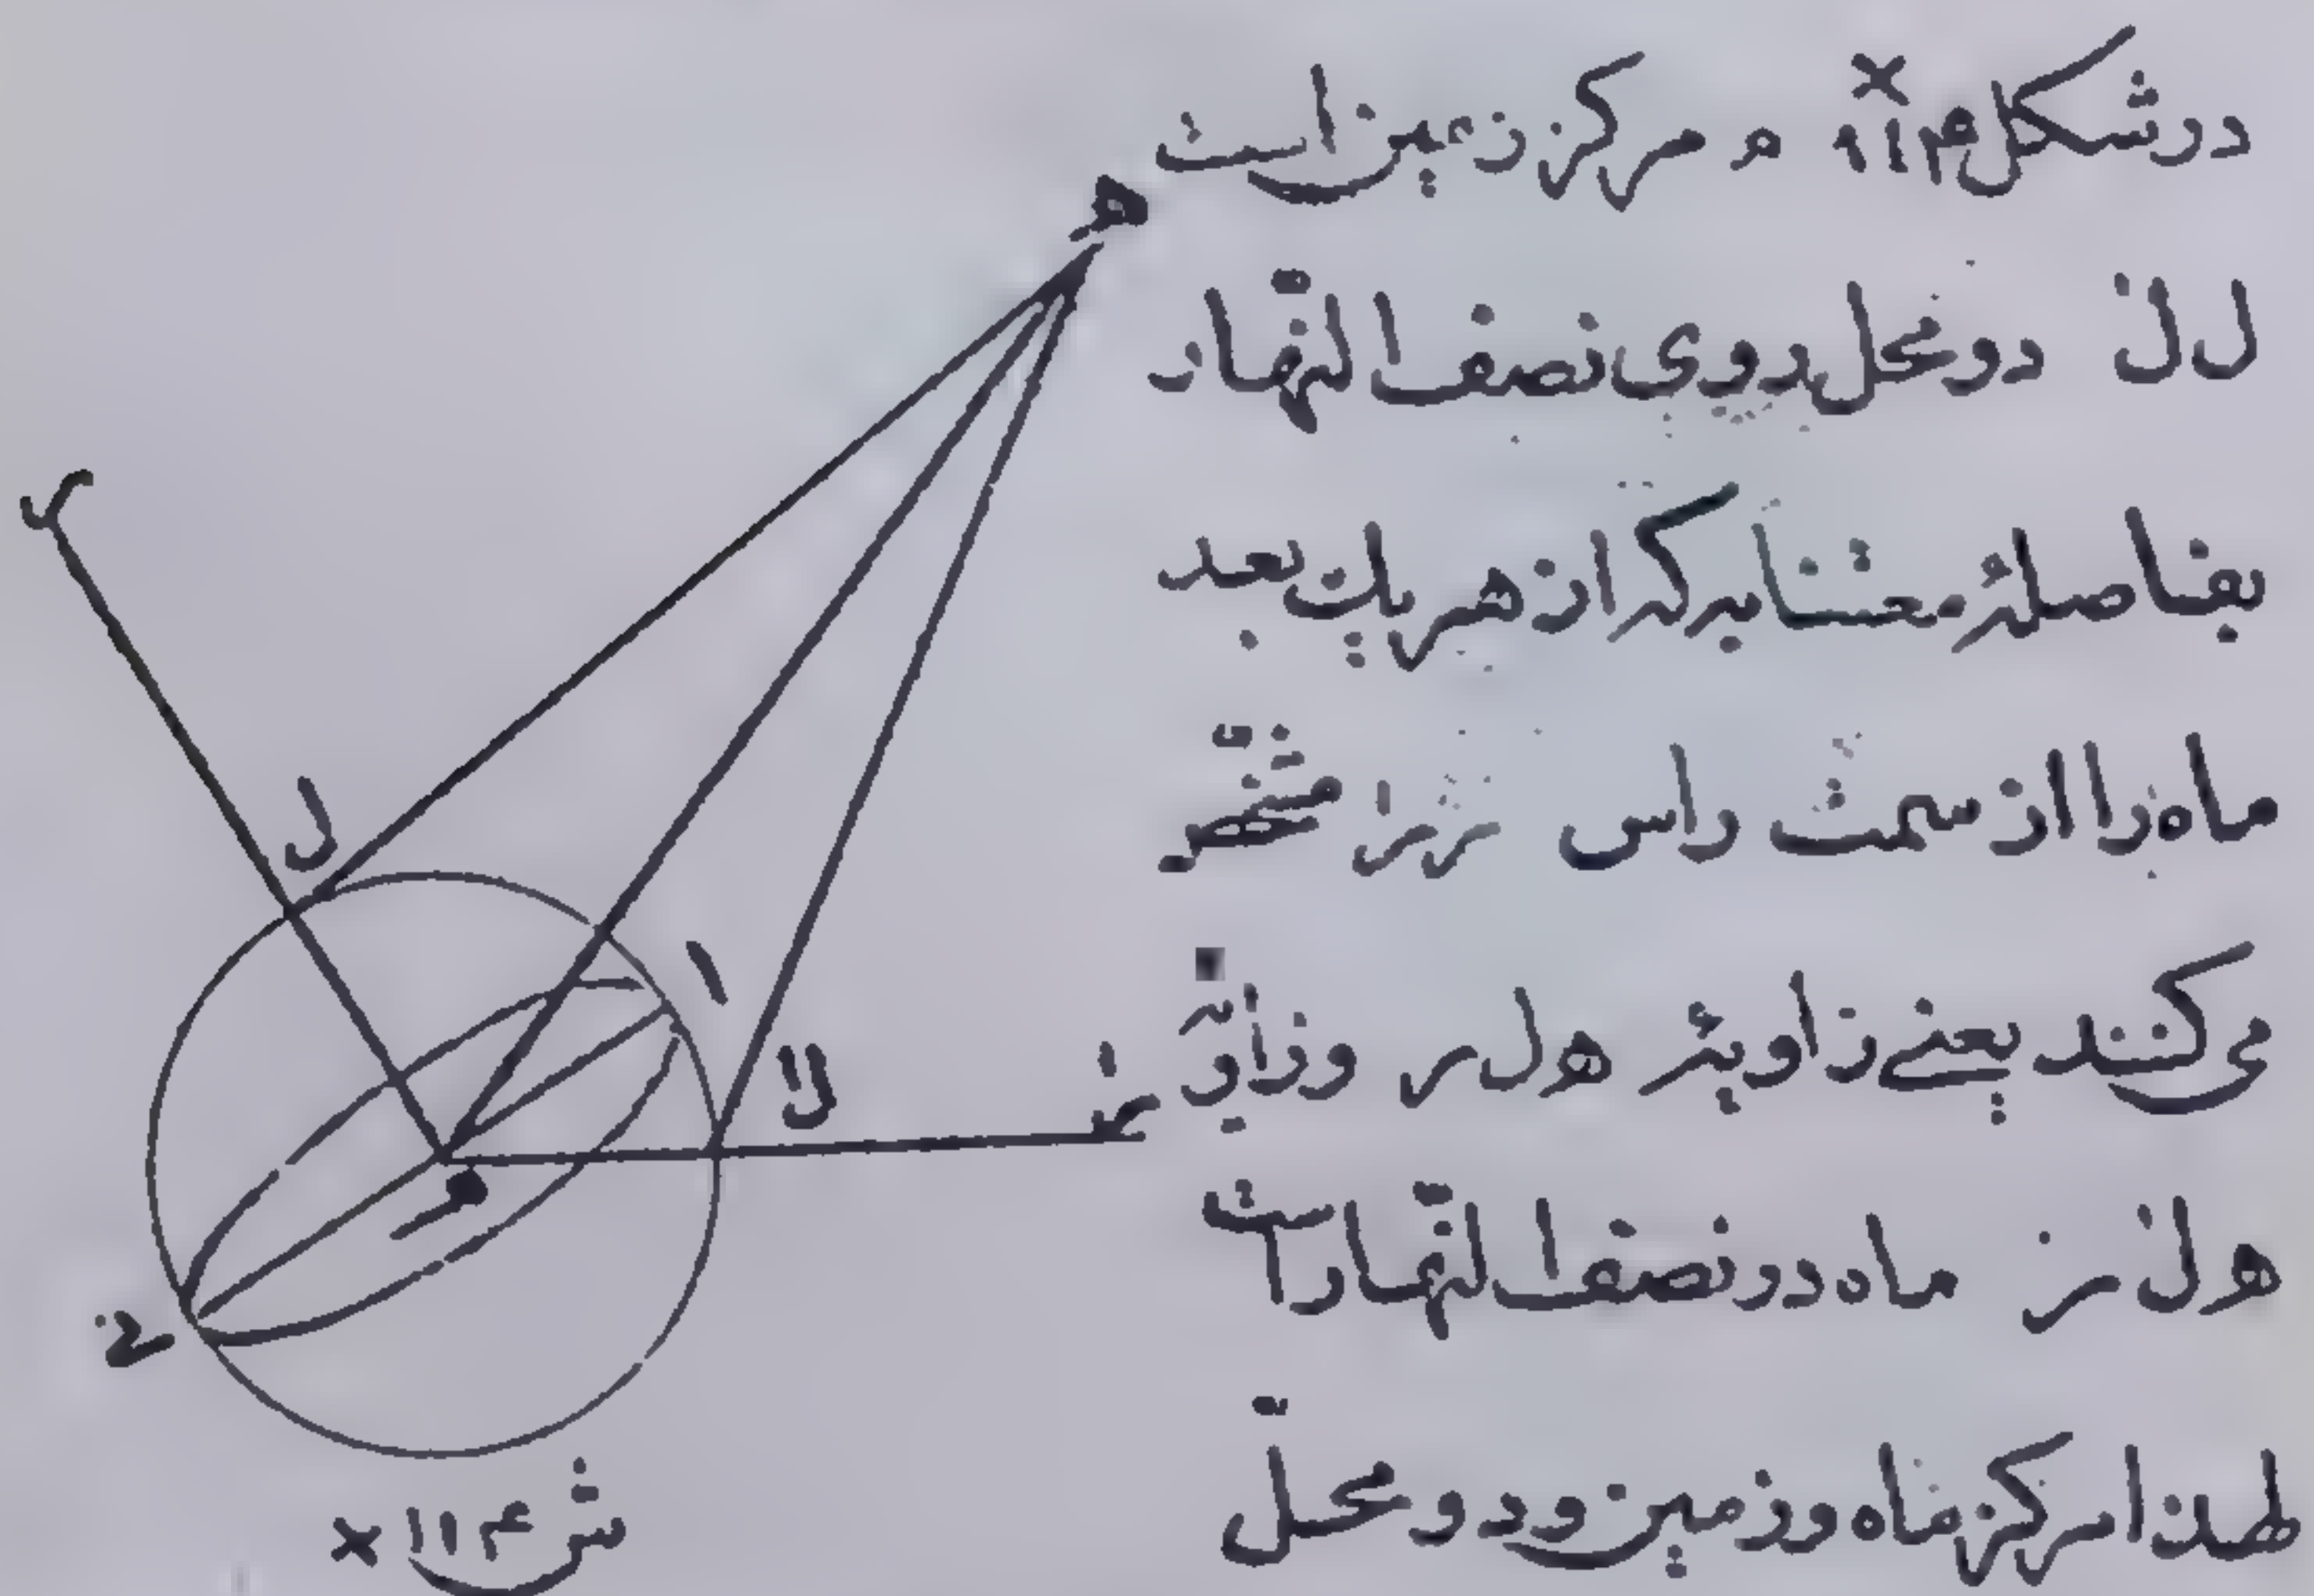 در شکل ۱۱۴× م مرکز زمین است
ل لَ دو محل روی نصف النّهار
بفاصلهٔ معتنابه که از هر یک بعد
ماه را از سمت راس
می‌کنند یعنی زاویهٔ ه ل ر و زاویهٔ
ه لَ رَ ماه در نصف النّهار است
لهذا مرکز ماه و زمین و دو محلّ
ه
ر
ل
ا
لَ
رَ
م
ش ۱۱۴×